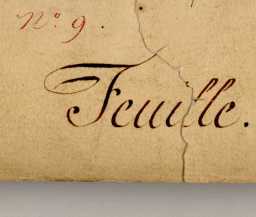 Nº 9.
Feuille.